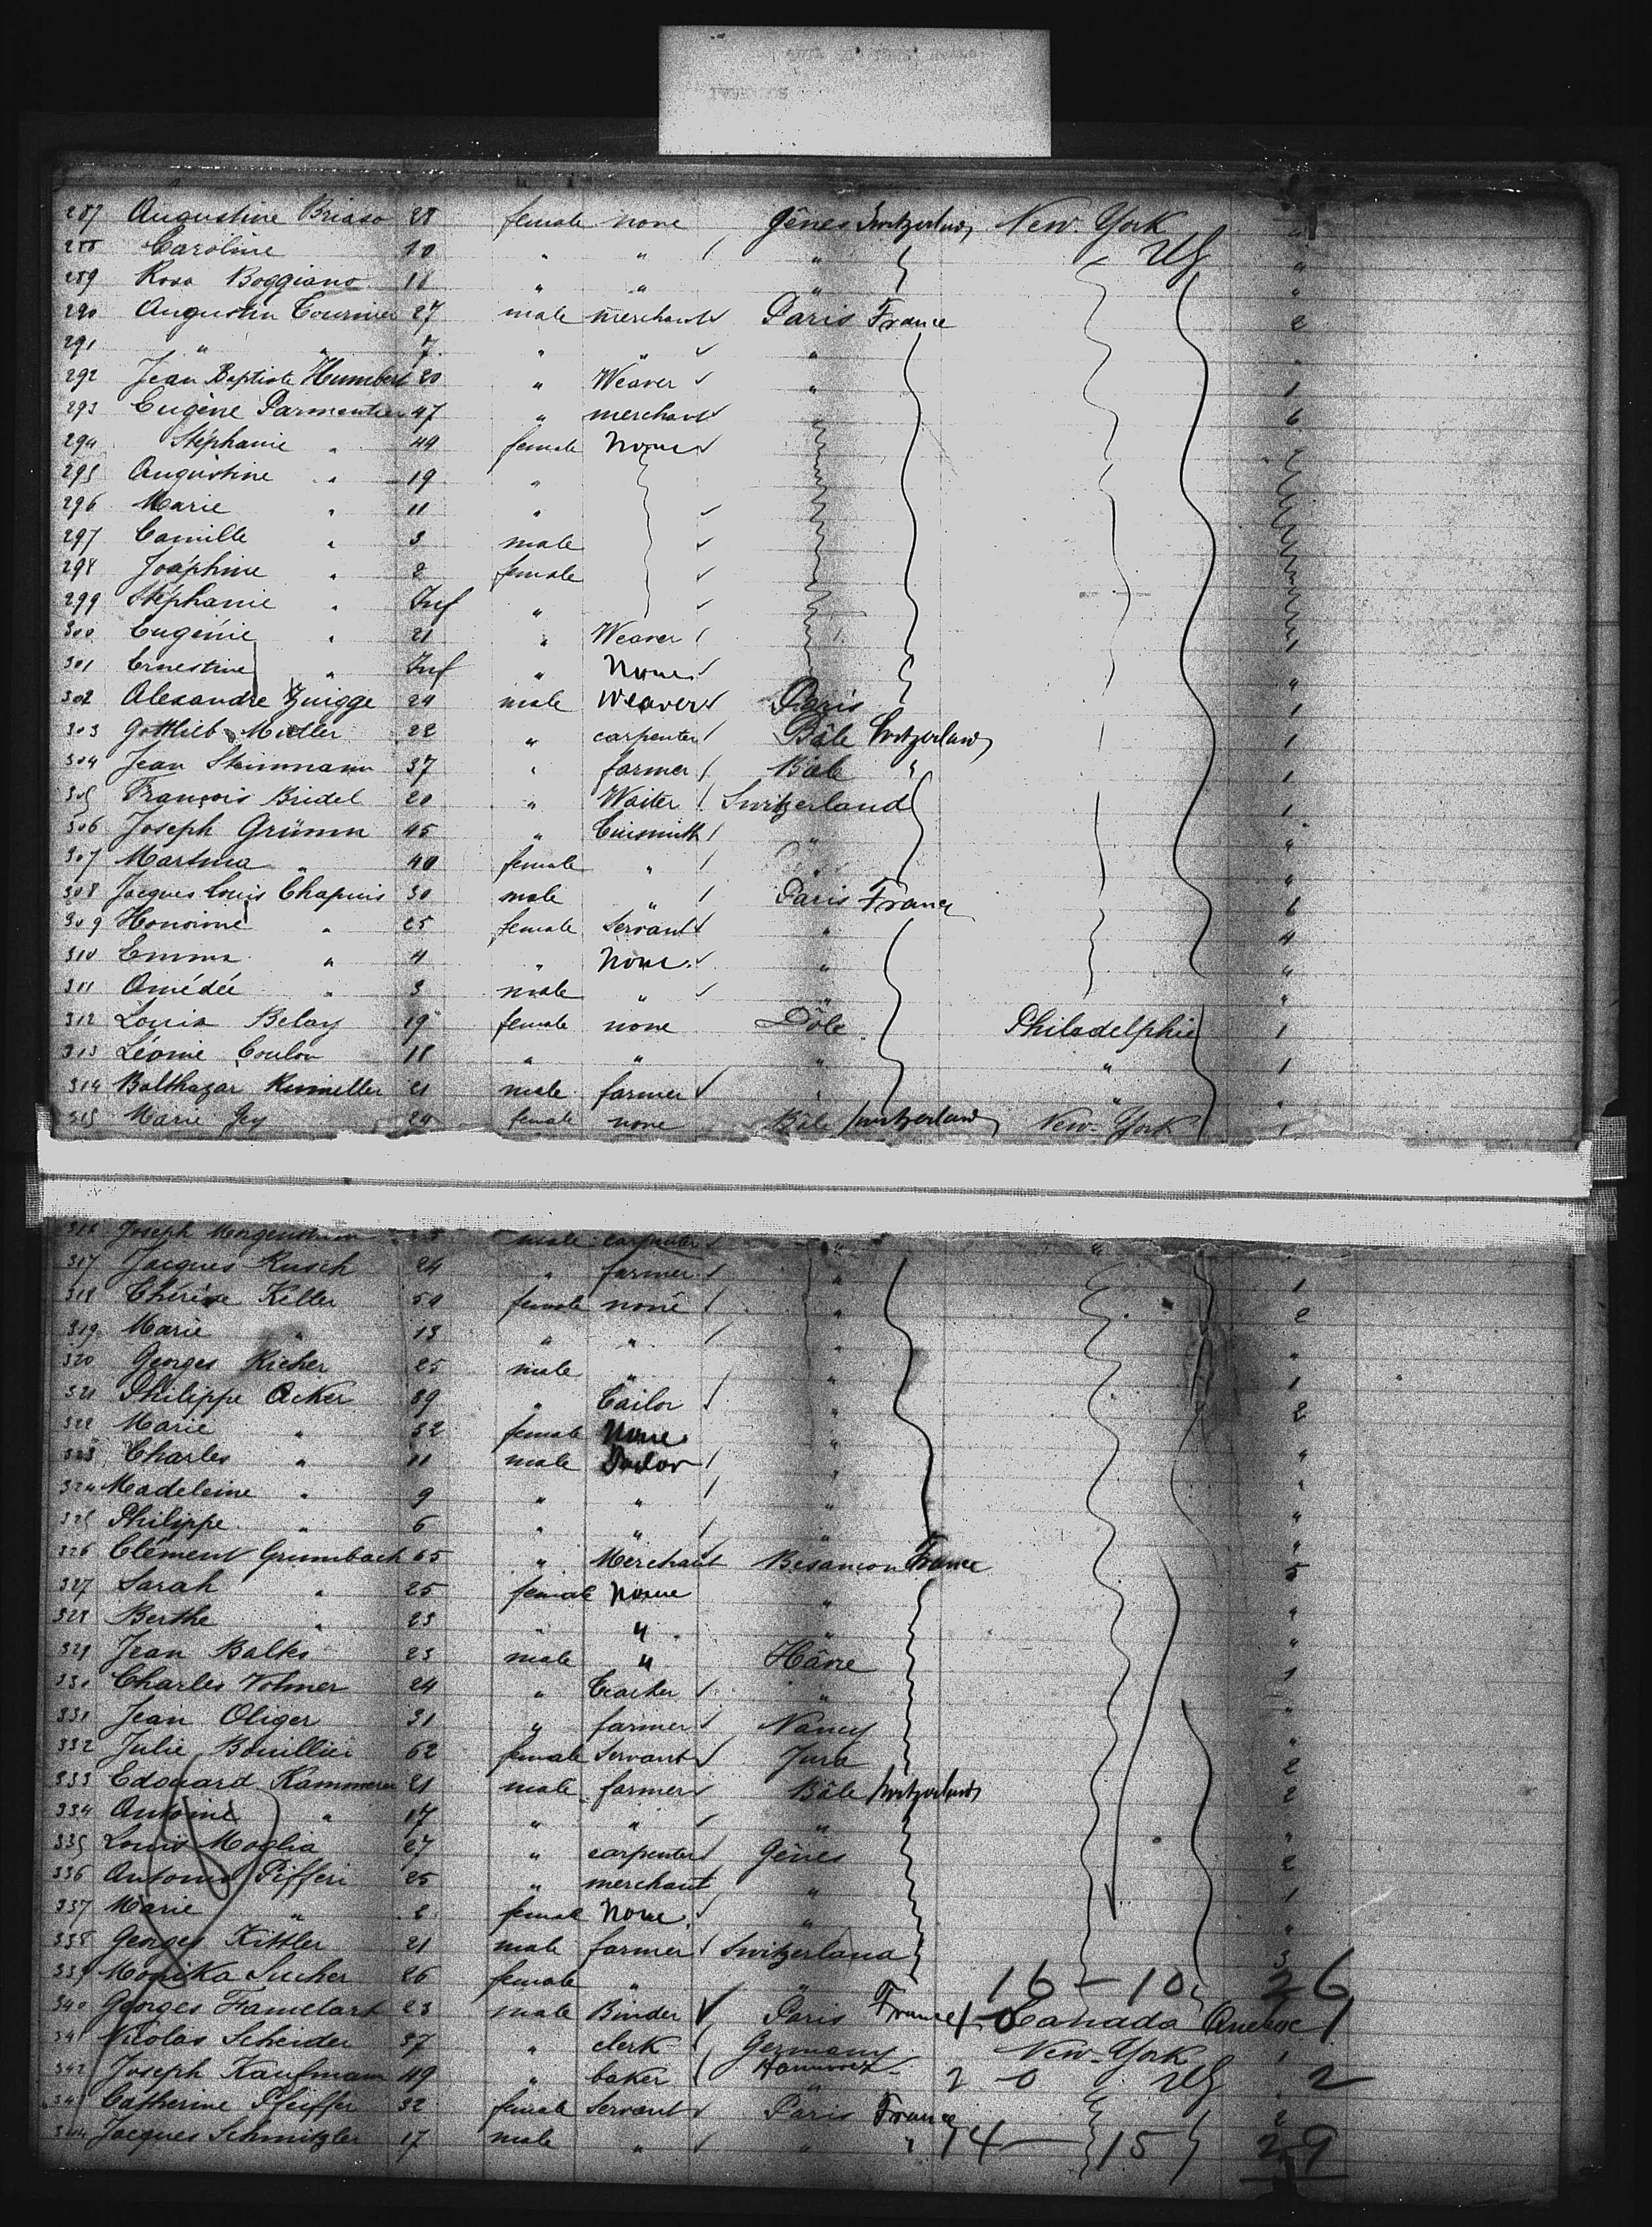 287 Augustine Briaso 28 female none Gênes Switzerland New-York
288 Caroline 10 " " " US "
289 Rosa Boggiano 18 " " " "
290 Augustin Tournier 27 male merchant Paris France 2
291 " " 7 " " " "
292 Jean Baptiste Humbert 20 " Weaver " 1
293 Eugène Parmentier 47 " merchant " 6
294 Stéphanie " 44 female None
295 Augustine " 19 "
296 Marie " 11 "
297 Camille " 3 male
298 Joséphine " 2 female
299 Stéphanie " Inf "
300 Eugénie " 21 " Weaver 1
301 Ernestine " Inf " None "
302 Alexandre Zuigge 24 male Weaver Paris 1
303 Gottlieb 22 " carpenter Bâle Switzerland 1
304 Jean Steinmann 37 " farmer Bâle " 1
305 François Bridel 20 " Waiter Switzerland 1
306 Joseph Grümm 45 " " "
307 Martina " 40 female " " "
308 Jacques Louis Chapuis 30 male " Paris France
309 " 25 female Servant " 4
310 Emma " 4 " None " "
311 Amédée " 3 male " " "
312 Louis Belay 19 female none Dôle Philadelphie 1
313 Léonie Coulon 18 " " " " 1
314 Balthazar 21 male farmer " " "
315 Marie 24 female none Bâle Switzerland New-York 1
316 Joseph male carpenter " "
317 Jacques Rusch 24 " farmer " 1
318 Thérèse Keller 54 female none " 2
319 Marie " 13 " " " "
320 Georges Richer 25 male " " 1
321 Philippe Acker 39 " Tailor " 2
322 Marie " 32 female None " "
323 Charles " 11 male " "
324 Madeleine " 9 " " " "
325 Philippe " 6 " " " "
326 Clément Grumbach 65 " Merchant Besancon France 5
327 Sarah " 25 female None " "
328 Berthe " 23 " " " "
329 Jean Balks 23 male " Hâvre 1
330 Charles Volmer 24 " " "
331 Jean Oliger 31 " farmer Nancy "
332 Julie Bouillier 62 female Servant Jura 2
333 Edouard Kammerer 21 male farmer Bâle Switzerland 2
334 Antoine " 17 " " " "
335 Louis Moglia 27 " carpenter Gênes 2
336 Antoine Pifferi 25 " merchant " 1
337 Marie " 2 female None " "
338 Georges Kittler 21 male farmer Switzerland 3
339 Monika Sucher 26 female " " 16 - 10 26
340 Georges Famelart 23 male Binder Paris France 1-0 Canada Quebec 1
341 Nicolas Scheider 37 " clerk Germany New-York 1
342 Joseph Kaufmann 49 " baker Hannover 2 0 US 2
343 Catherine Pfeiffer 32 female Servant Paris France 2
344 Jacques Schmitzler 17 male " " " 14 - 15 29